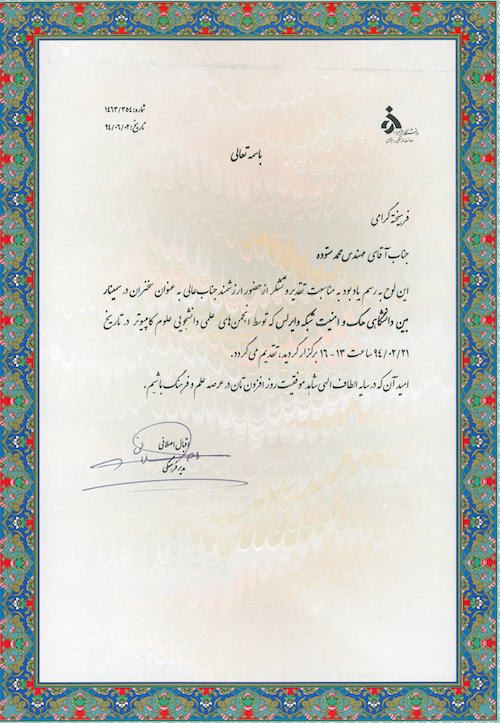 شماره: ۱۴۶۳/۳۵۴
تاریخ: ۹۴/۰۶/۰۲
باسمه تعالی
فرهیخته گرامی
جناب آقای مهندس محمد ستوده
این لوح به رسم یادبود به مناسبت تقدیر و تشکر از حضور ارزشمند جناب عالی به عنوان سخنران در سمینار
بین دانشگاهی هک و امنیت شبکه وایرلس که توسط انجمن های علمی دانشجویی علوم کامپیوتر در تاریخ
۹۴/۰۲/۲۱ ساعت ۱۳ - ۱۶ برگزار گردید، تقدیم می گردد.
امید آن که در سایه الطاف الهی شاهد موفقیت روز افزون تان در عرصه علم و فرهنگ باشیم.
اقبال اصلانی
مدیر فرهنگی